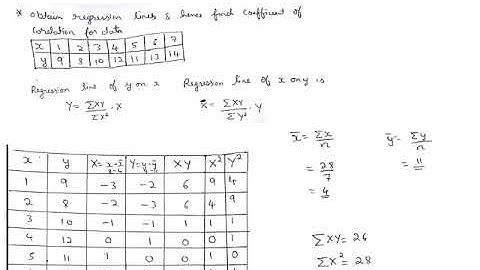 * Obtain regression lines & hence find coefficient of
Corelation for data
x 1 2 3 4 5 6 7
y 9 8 10 12 11 13 14
Regression line of y on x Regression line of x on y is
Y = ΣXY / ΣX² . X X = ΣXY / ΣY² . Y
x̄ = Σx / n ȳ = Σy / n
= 28 / 7 = 11
= 4
x y X = x-x̄ Y = y-ȳ XY X² Y²
1 9 -3 -2 6 9 4
2 8 -2 -3 6 4 9
3 10 -1 -1 1 1 1
4 12 0 1 0 0 1
5 11 1 0 0 1 0
ΣXY = 26
ΣX² = 28